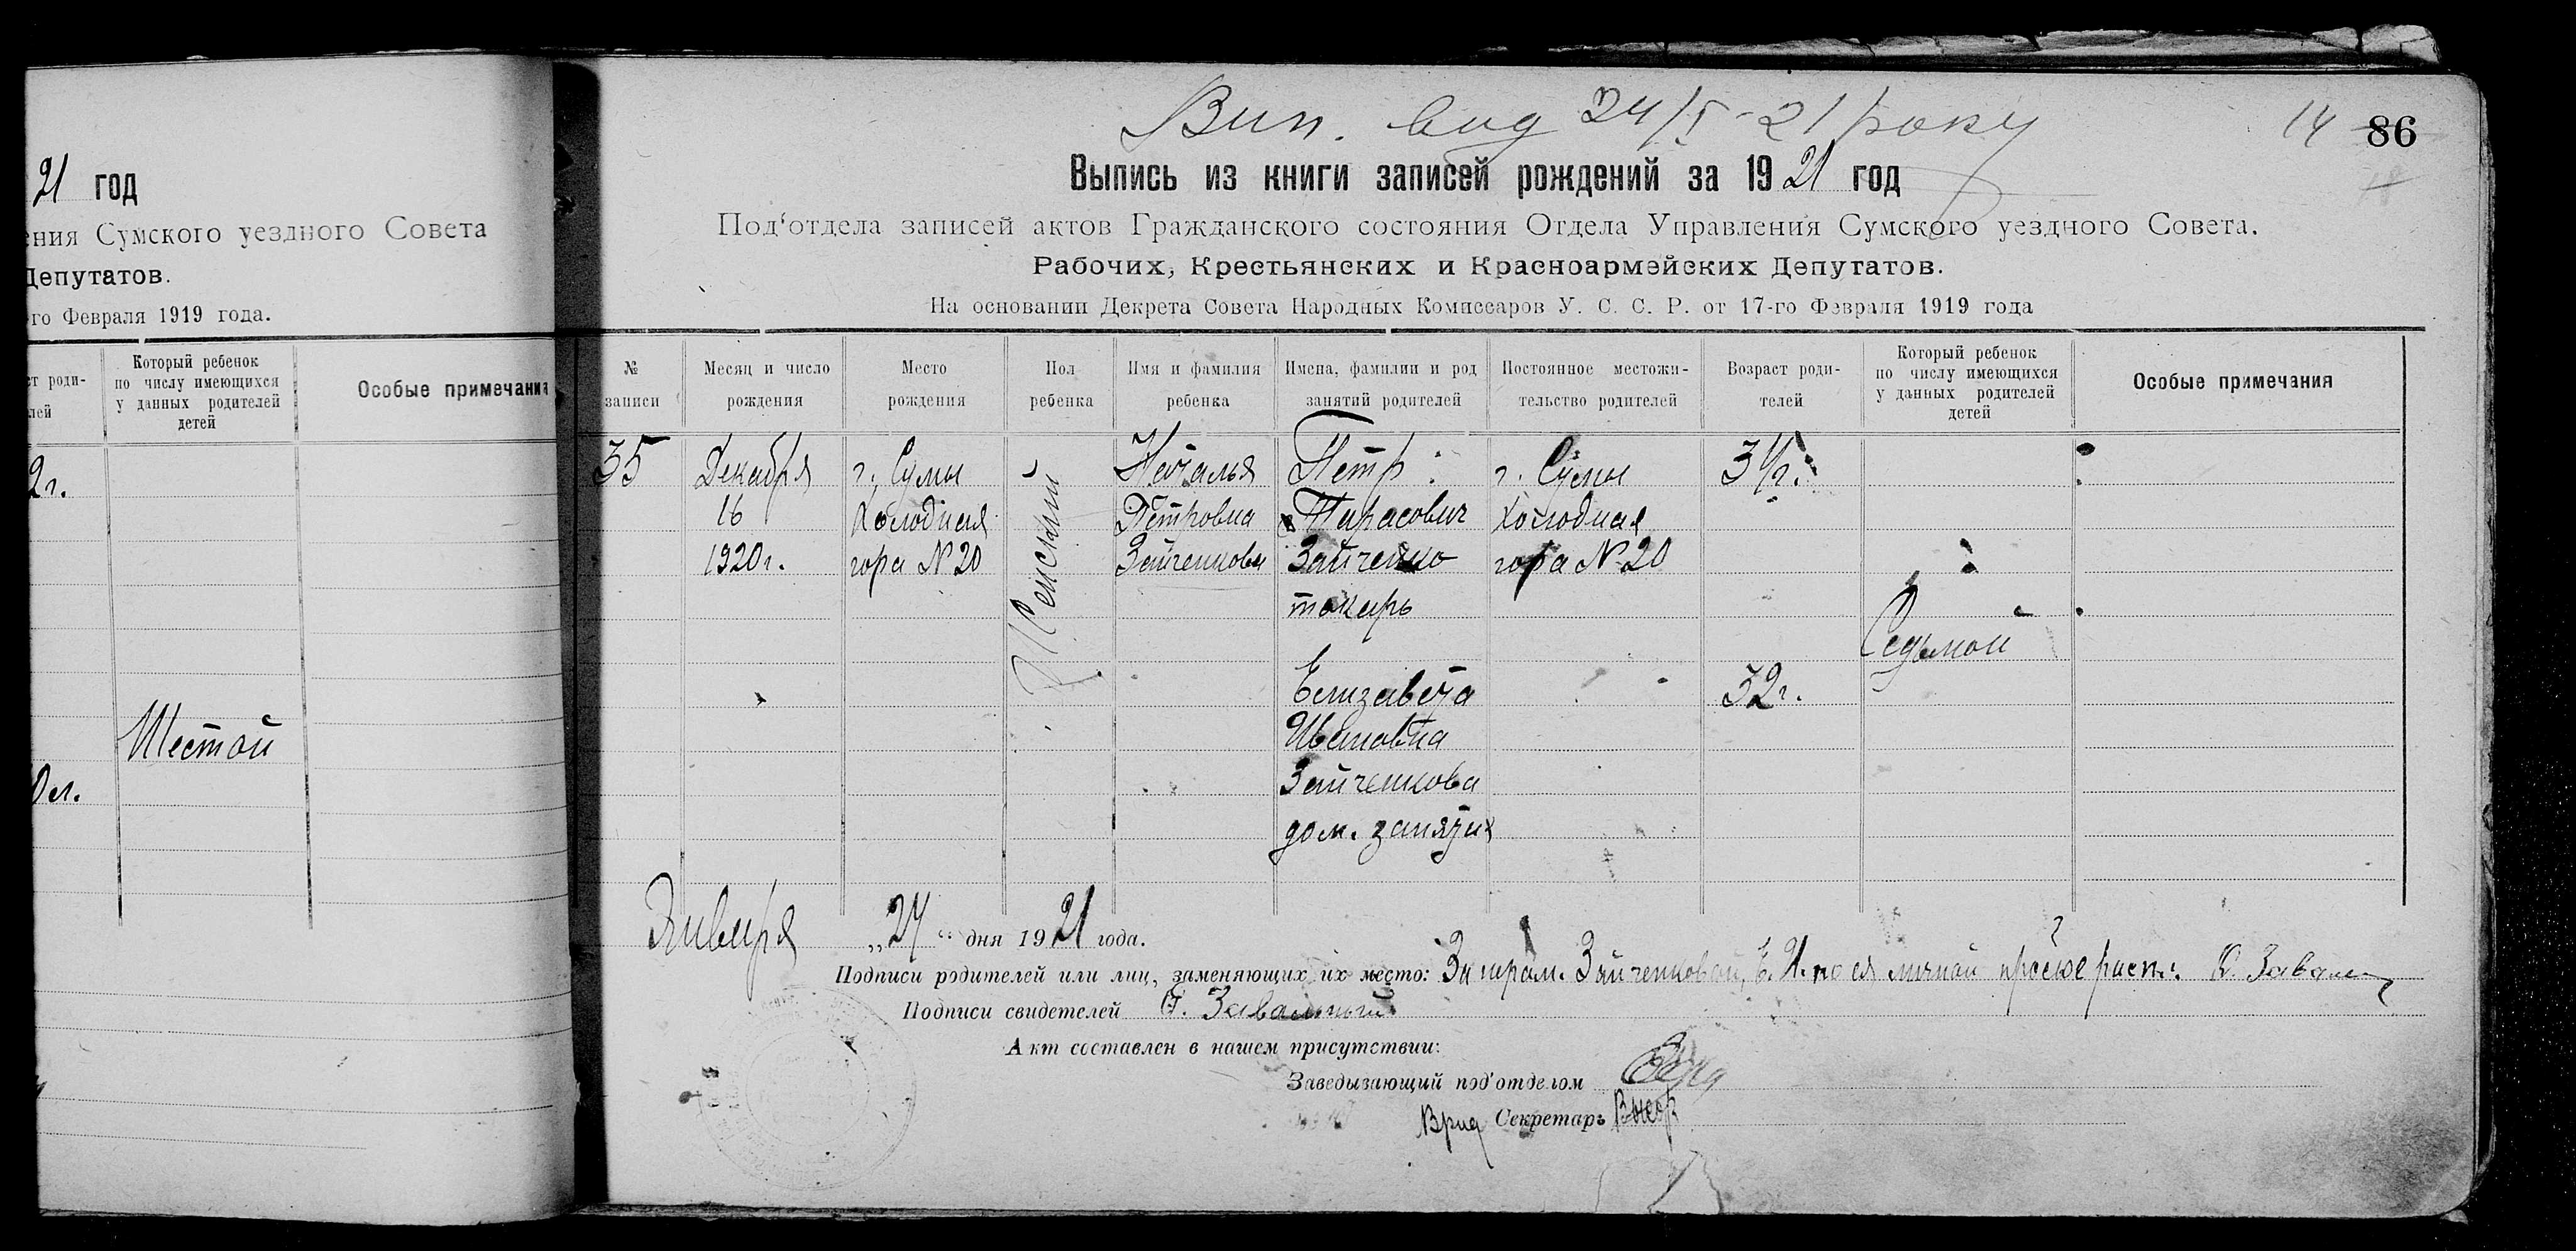 21 год
ения Сумского уездного Совета
Депутатов.
го Февраля 1919 года.
ст роди-
лей
Который ребенок
по числу имеющихся
у данных родителей
детей
Особые примечания
2 г.
Шестой
0 л.
Вип. вид 24/I-21 року
14 86
Выпись из книги записей рождений за 1921 год
Под‘отдела записей актов Гражданского состояния Отдела Управления Сумского уездного Совета.
Рабочих, Крестьянских и Красноармейских Депутатов.
На основании Декрета Совета Народных Комиссаров У. С. С. Р. от 17-го Февраля 1919 года
№
записи
Месяц и число
рождения
Место
рождения
Пол
ребенка
Имя и фамилия
ребенка
Имена, фамилии и род
занятий родителей
Постоянное местожи-
тельство родителей
Возраст роди-
телей
Который ребенок
по числу имеющихся
у данных родителей
детей
Особые примечания
35
Декабря
16
1920 г.
г. Сумы
Холодная
гора N 20
Женский
Наталья
Петровна
Зайченкова
Петр
Тарасович
Зайченко
токарь
Елизавета
Ивановна
Зайченкова
дом. занятия
г. Сумы
Холодная
гора N 20
31 г.
32 г.
Седьмой
Января „24“ дня 1921 года.
Подписи родителей или лиц, заменяющих их место: За неграм. Зайченковой, Е. И. по ея личной просьбе расп.
Подписи свидетелей
Акт составлен в нашем присутствии:
Заведывающий под‘отделом
Врид Секретарь